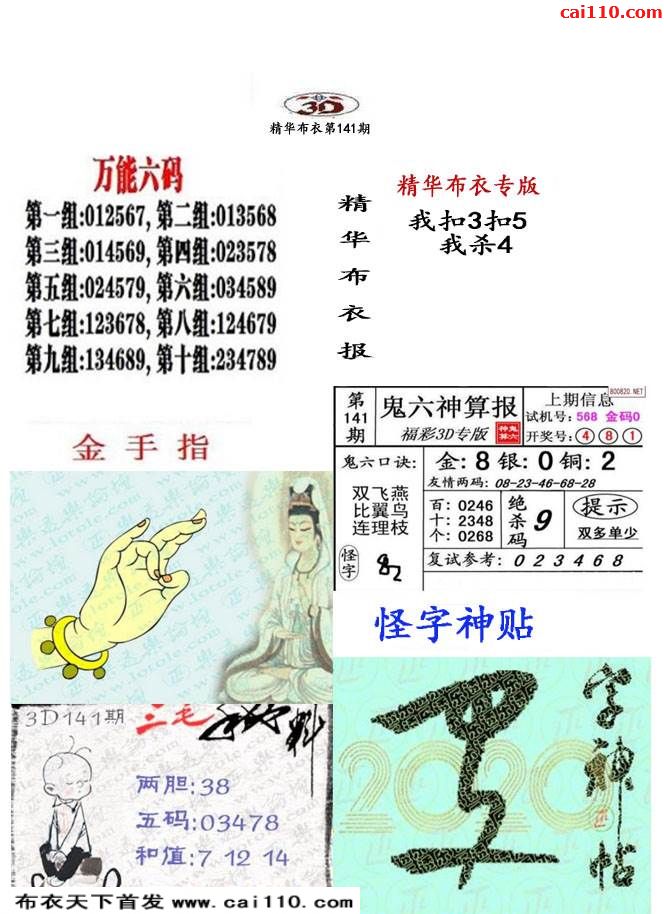 cai110.com
3D
精华布衣第141期
万能六码
第一组:012567,第二组:013568
第三组:014569,第四组:023578
第五组:024579,第六组:034589
第七组:123678,第八组:124679
第九组:134689,第十组:234789
精华布衣报
精华布衣专版
我扣3扣5
我杀4
金手指
第141期
鬼六神算报
福彩3D专版
神鬼算六
800820.NET
上期信息
试机号:568 金码0
开奖号:④⑧①
鬼六口诀:
双飞燕
比翼鸟
连理枝
怪字
金:8 银:0 铜:2
友情两码:08-23-46-68-28
百:0246
十:2348
个:0268
绝杀码
9
提示
双多单少
复试参考:023468
怪字神贴
3D141期
三毛
两胆:38
五码:03478
和值:7 12 14
2020
字神帖
布衣天下首发 www.cai110.com